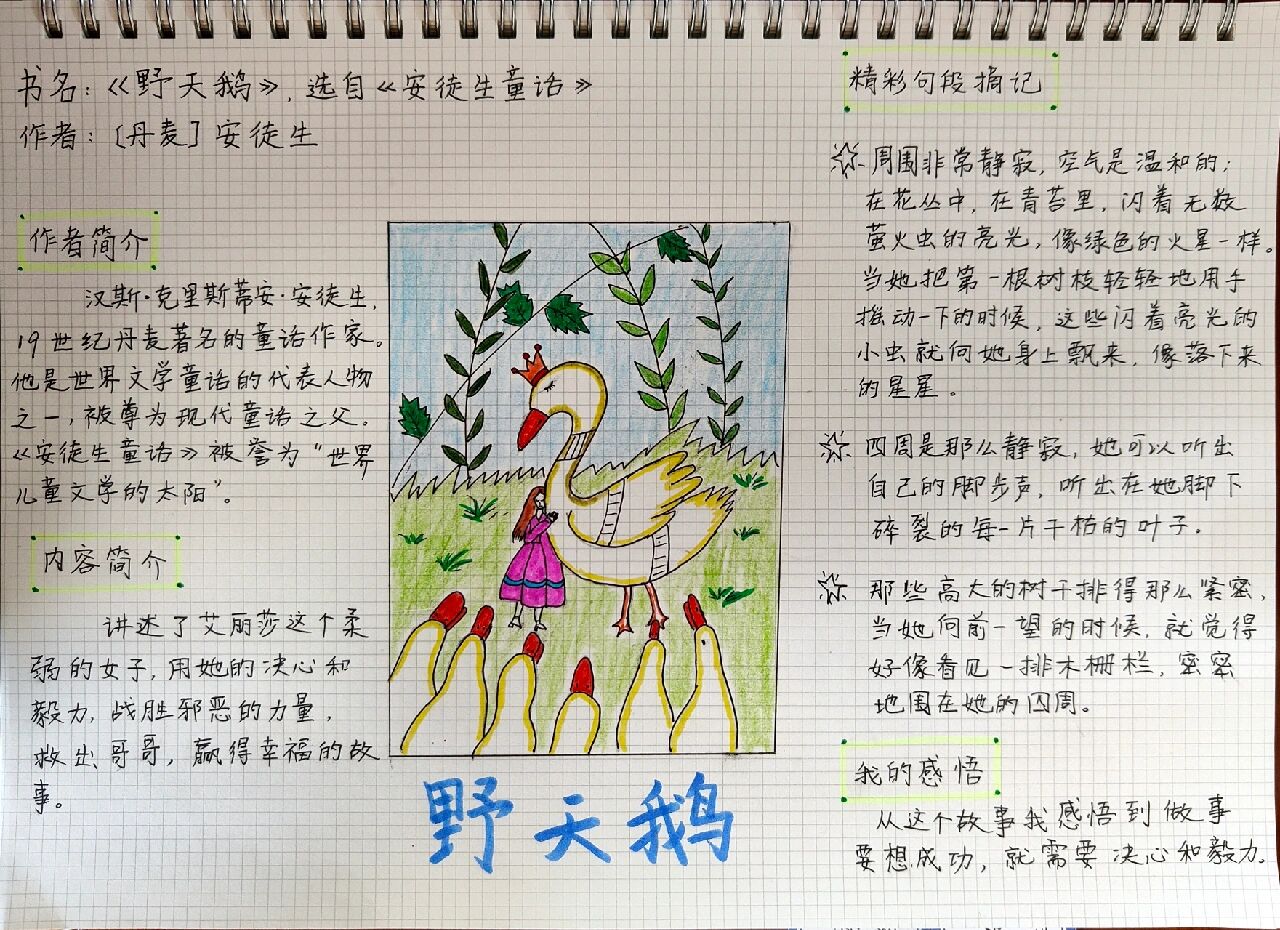 书名：《野天鹅》，选自《安徒生童话》
作者：[丹麦] 安徒生
作者简介
汉斯·克里斯蒂安·安徒生，
19世纪丹麦著名的童话作家。
他是世界文学童话的代表人物
之一，被尊为现代童话之父。
《安徒生童话》被誉为“世界
儿童文学的太阳”。
内容简介
讲述了艾丽莎这个柔
弱的女子，用她的决心和
毅力，战胜邪恶的力量，
救出哥哥，赢得幸福的故
事。
野天鹅
精彩句段摘记
周围非常静寂，空气是温和的；
在花丛中，在青苔里，闪着无数
萤火虫的亮光，像绿色的火星一样。
当她把第一根树枝轻轻地用手
摇动一下的时候，这些闪着亮光的
小虫就向她身上飘来，像落下来
的星星。
四周是那么静寂，她可以听出
自己的脚步声，听出在她脚下
碎裂的每一片干枯的叶子。
那些高大的树干排得那么紧密，
当她向前一望的时候，就觉得
好像看见一排木栅栏，密密
地围在她的四周。
我的感悟
从这个故事我感悟到做事
要想成功，就需要决心和毅力。